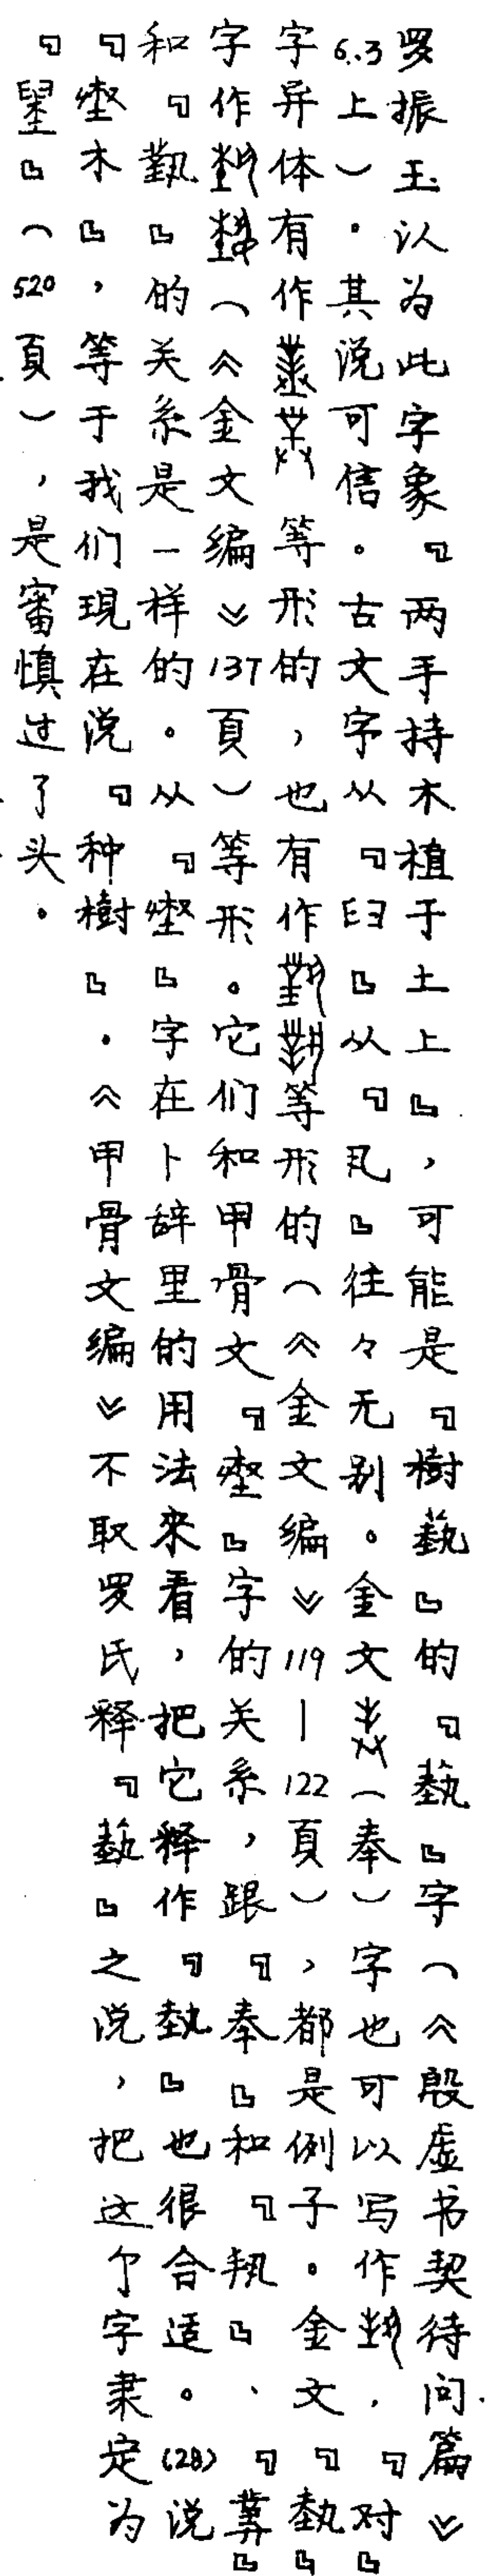 罗振玉认为此字象『两手持木植于土上』，可能是『樹藝』的『藝』字（《殷虚书契待问篇》
6.3上）。其说可信。古文字从『𦥑』从『丮』往々无别。金文（奉）字也可以写作，『对』
字异体有作等形的，也有作等形的（《金文编》119—122頁），都是例子。金文『埶』
字作（《金文编》137頁）等形。它们和甲骨文『』字的关系，跟『奉』和『𫝑』、『』
和『』的关系是一样的。从『』字在卜辞里的用法来看，把它释作『埶』也很合适。(28)说
『木』，等于我们現在说『种樹』。《甲骨文编》不取罗氏释『藝』之说，把这个字隶定为
『』（520頁），是審慎过了头。